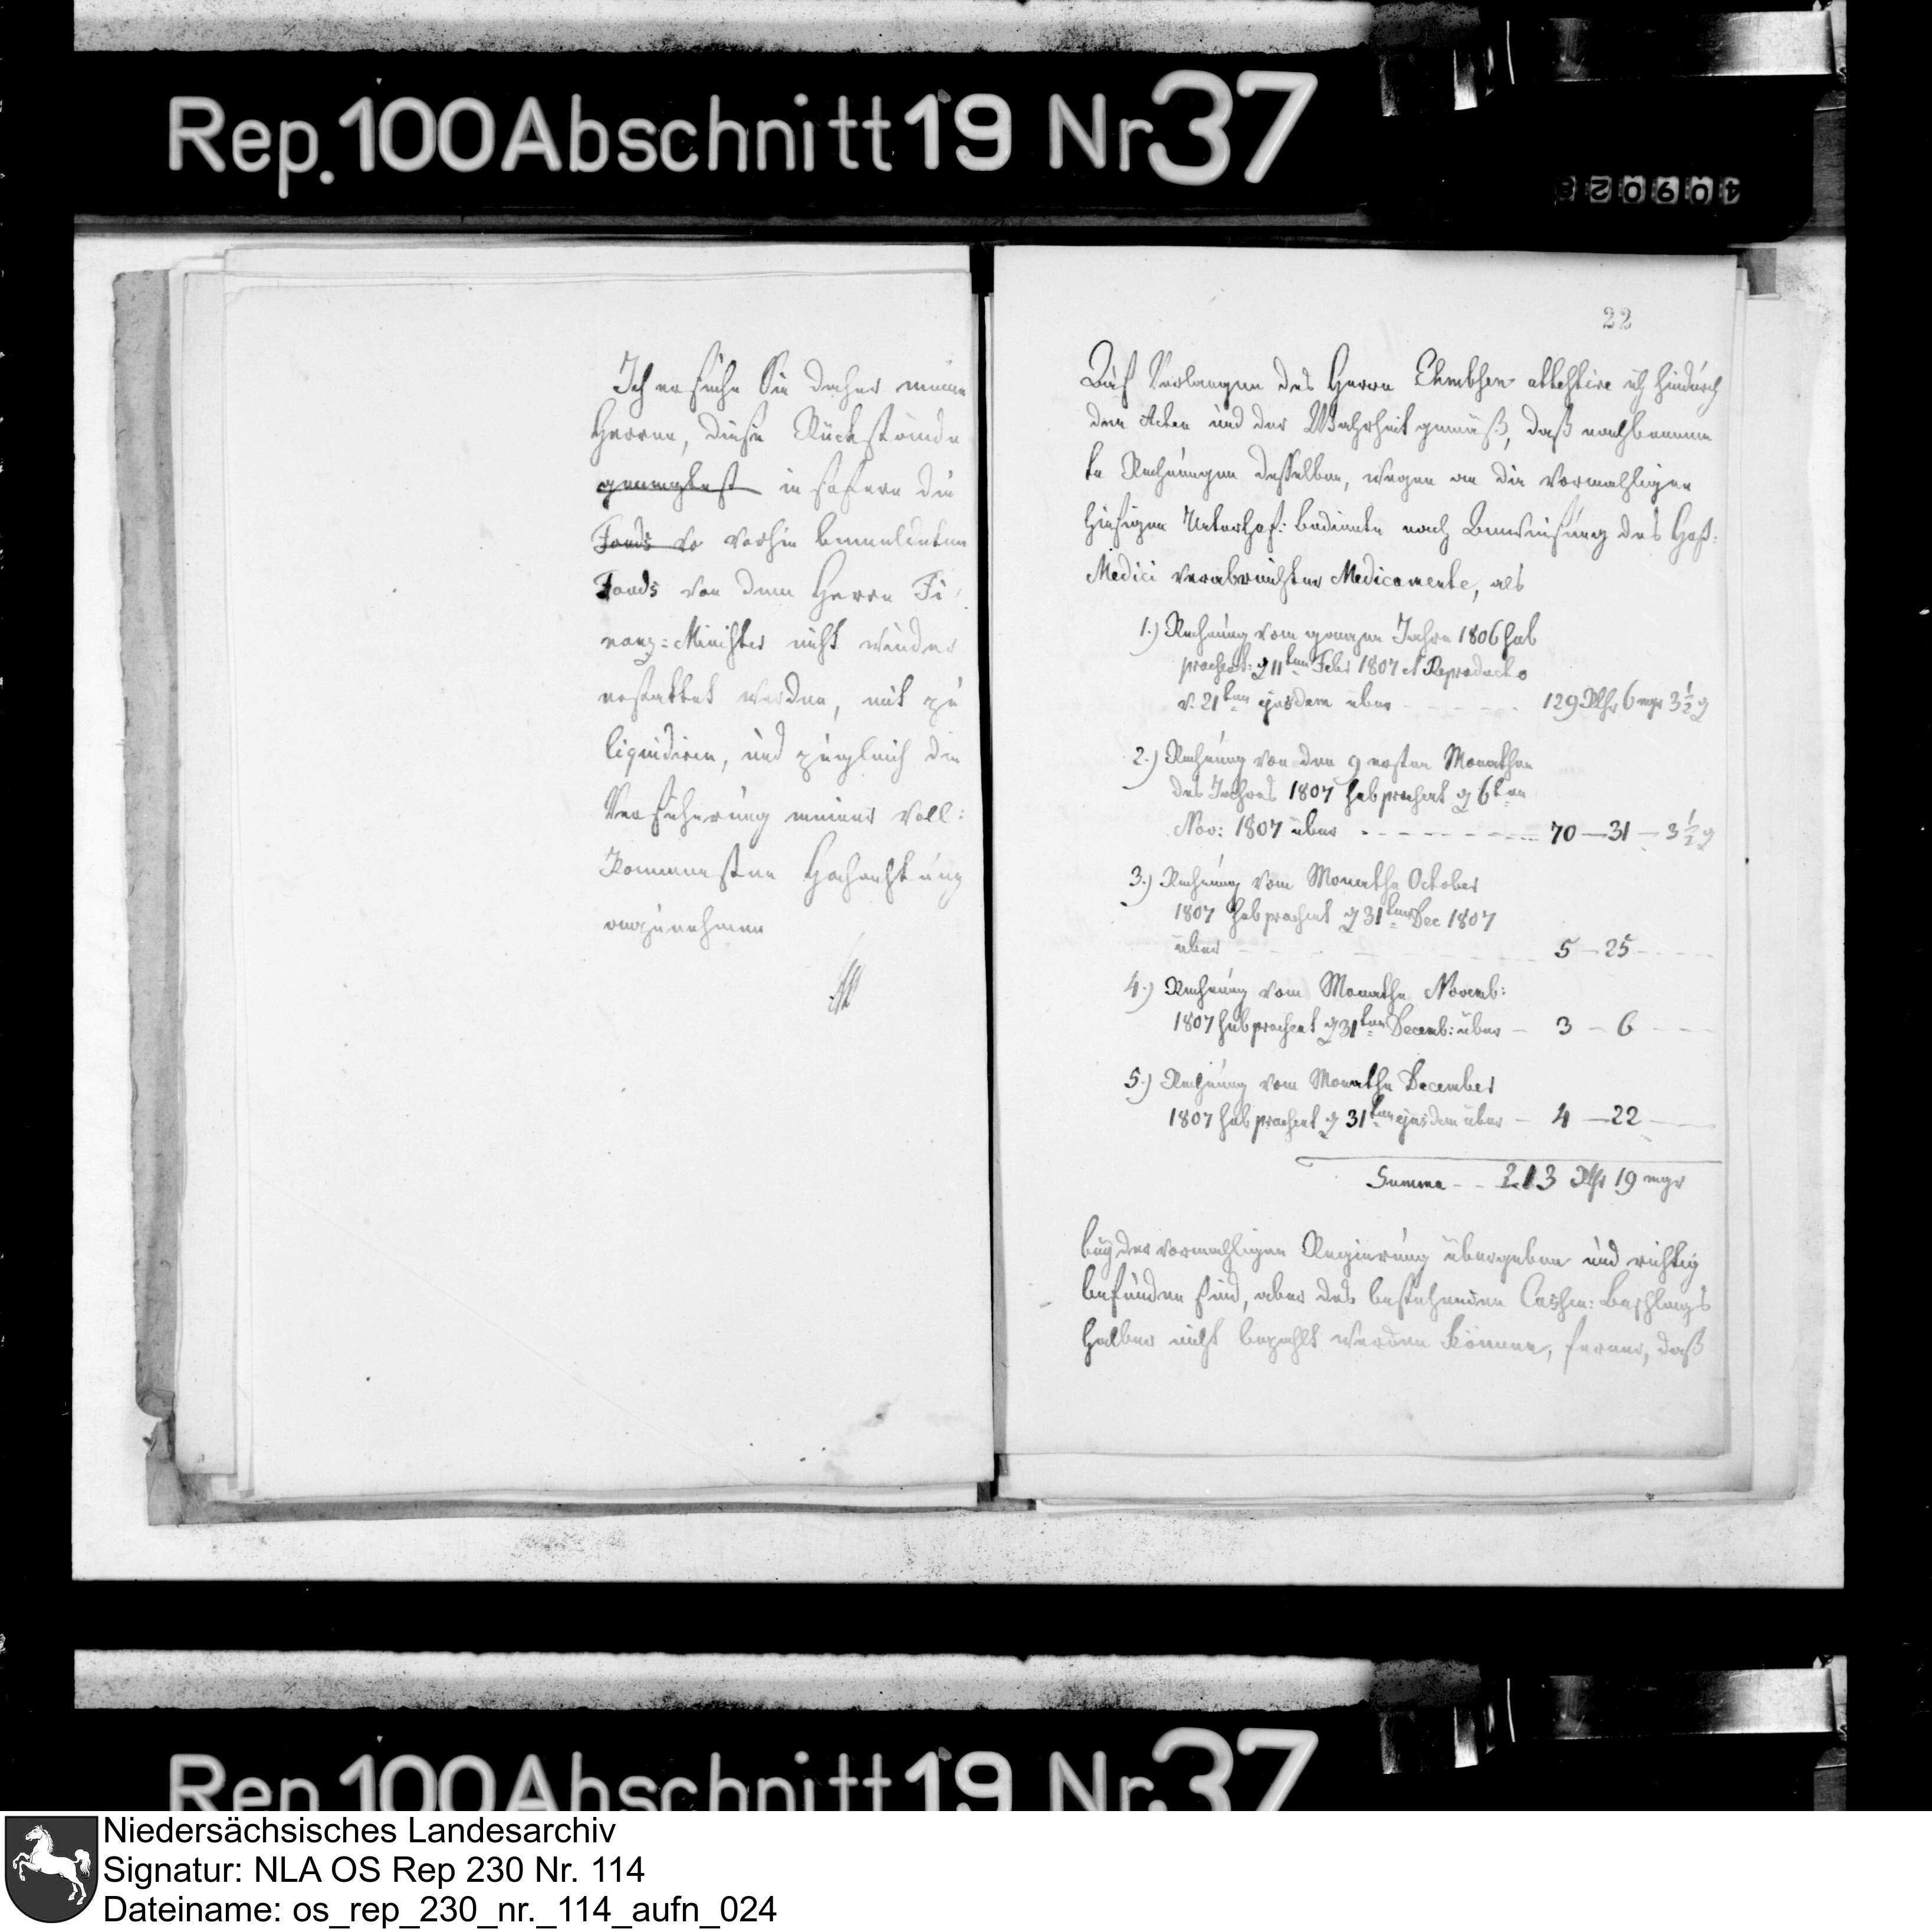 Rep. 100 Abschnitt 19 Nr 37
Ich ersuche Sie daher meine
Herren, diese Rückstände
geneigtest in sofern die
Fonds vo vorhin bemeldeten
Fonds von dem Herrn Fi-
nanz-Minister nicht wieder
erstattet werden, mit zu
liquidiren, und zugleich die
Versicherung meiner voll-
kommensten Hochachtung
anzunehmen
22
Auf Verlangen des Herrn Ehmbsen attestire ich hiedurch
den Acten und der Wahrheit gemäß, daß nachbenann
te Rechnungen desselben, wegen an die vormahligen
hiesigen Unterhof: bediente nach Anweisung des Hof-
Medici verabreichter Medicamente, als
1.) Rechnung vom ganzen Jahre 1806 hab
praesent: d 11ten Febr 1807 et Reproducto
v. 21ten ejusdem über 129 Rthr 6 mgr 3½ d
2.) Rechnung von den 9 ersten Monathen
des Jahres 1807 hab praesent d 6ten
Nov: 1807 über 70 — 31 — 3½ d
3.) Rechnung vom Monathe October
1807 hab praesent d 31ten Dec 1807
über 5 — 25
4.) Rechnung vom Monathe Novemb:
1807 hab praesent d 31ten Decemb: über — 3 — 6
5.) Rechnung vom Monathe December
1807 hab praesent d 31ten ejusdem über — 4 — 22
Summa 213 Rthr 19 mgr
bey der vormahligen Regierung übergeben und richtig
befunden sind, aber des bestehenden Cassen: Beschlags
halber nicht bezahlt werden können, ferner, daß
Rep. 100 Abschnitt 19 Nr. 37
Niedersächsisches Landesarchiv
Signatur: NLA OS Rep 230 Nr. 114
Dateiname: os_rep_230_nr._114_aufn_024